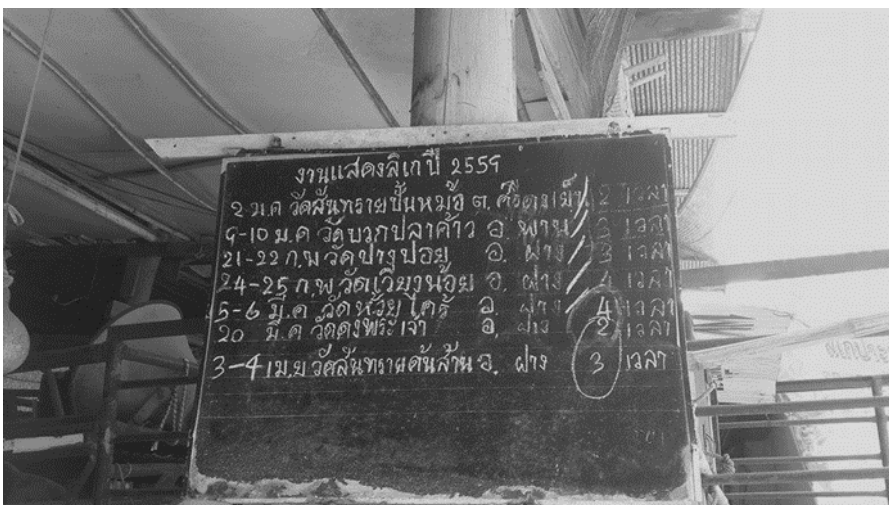 งานแสดงลิเกปี 2559
2 ม.ค วัดสันทรายปั้นหม้อ ต. 2 เวลา
9-10 ม.ค วัดบวกปลาค้าว อ. พาน 3 เวลา
21-22 ก.พ วัดปางปอย อ. ฝาง 3 เวลา
24-25 ก.พ. วัดเวียงน้อย อ. ฝาง 4 เวลา
5-6 มี.ค วัดห้วยไคร้ อ. ฝาง 4 เวลา
20 มี.ค วัดดงพระเจ้า อ. ฝาง 2 เวลา
3-4 เม.ย วัดสันทรายต้นล้าน อ. ฝาง 3 เวลา